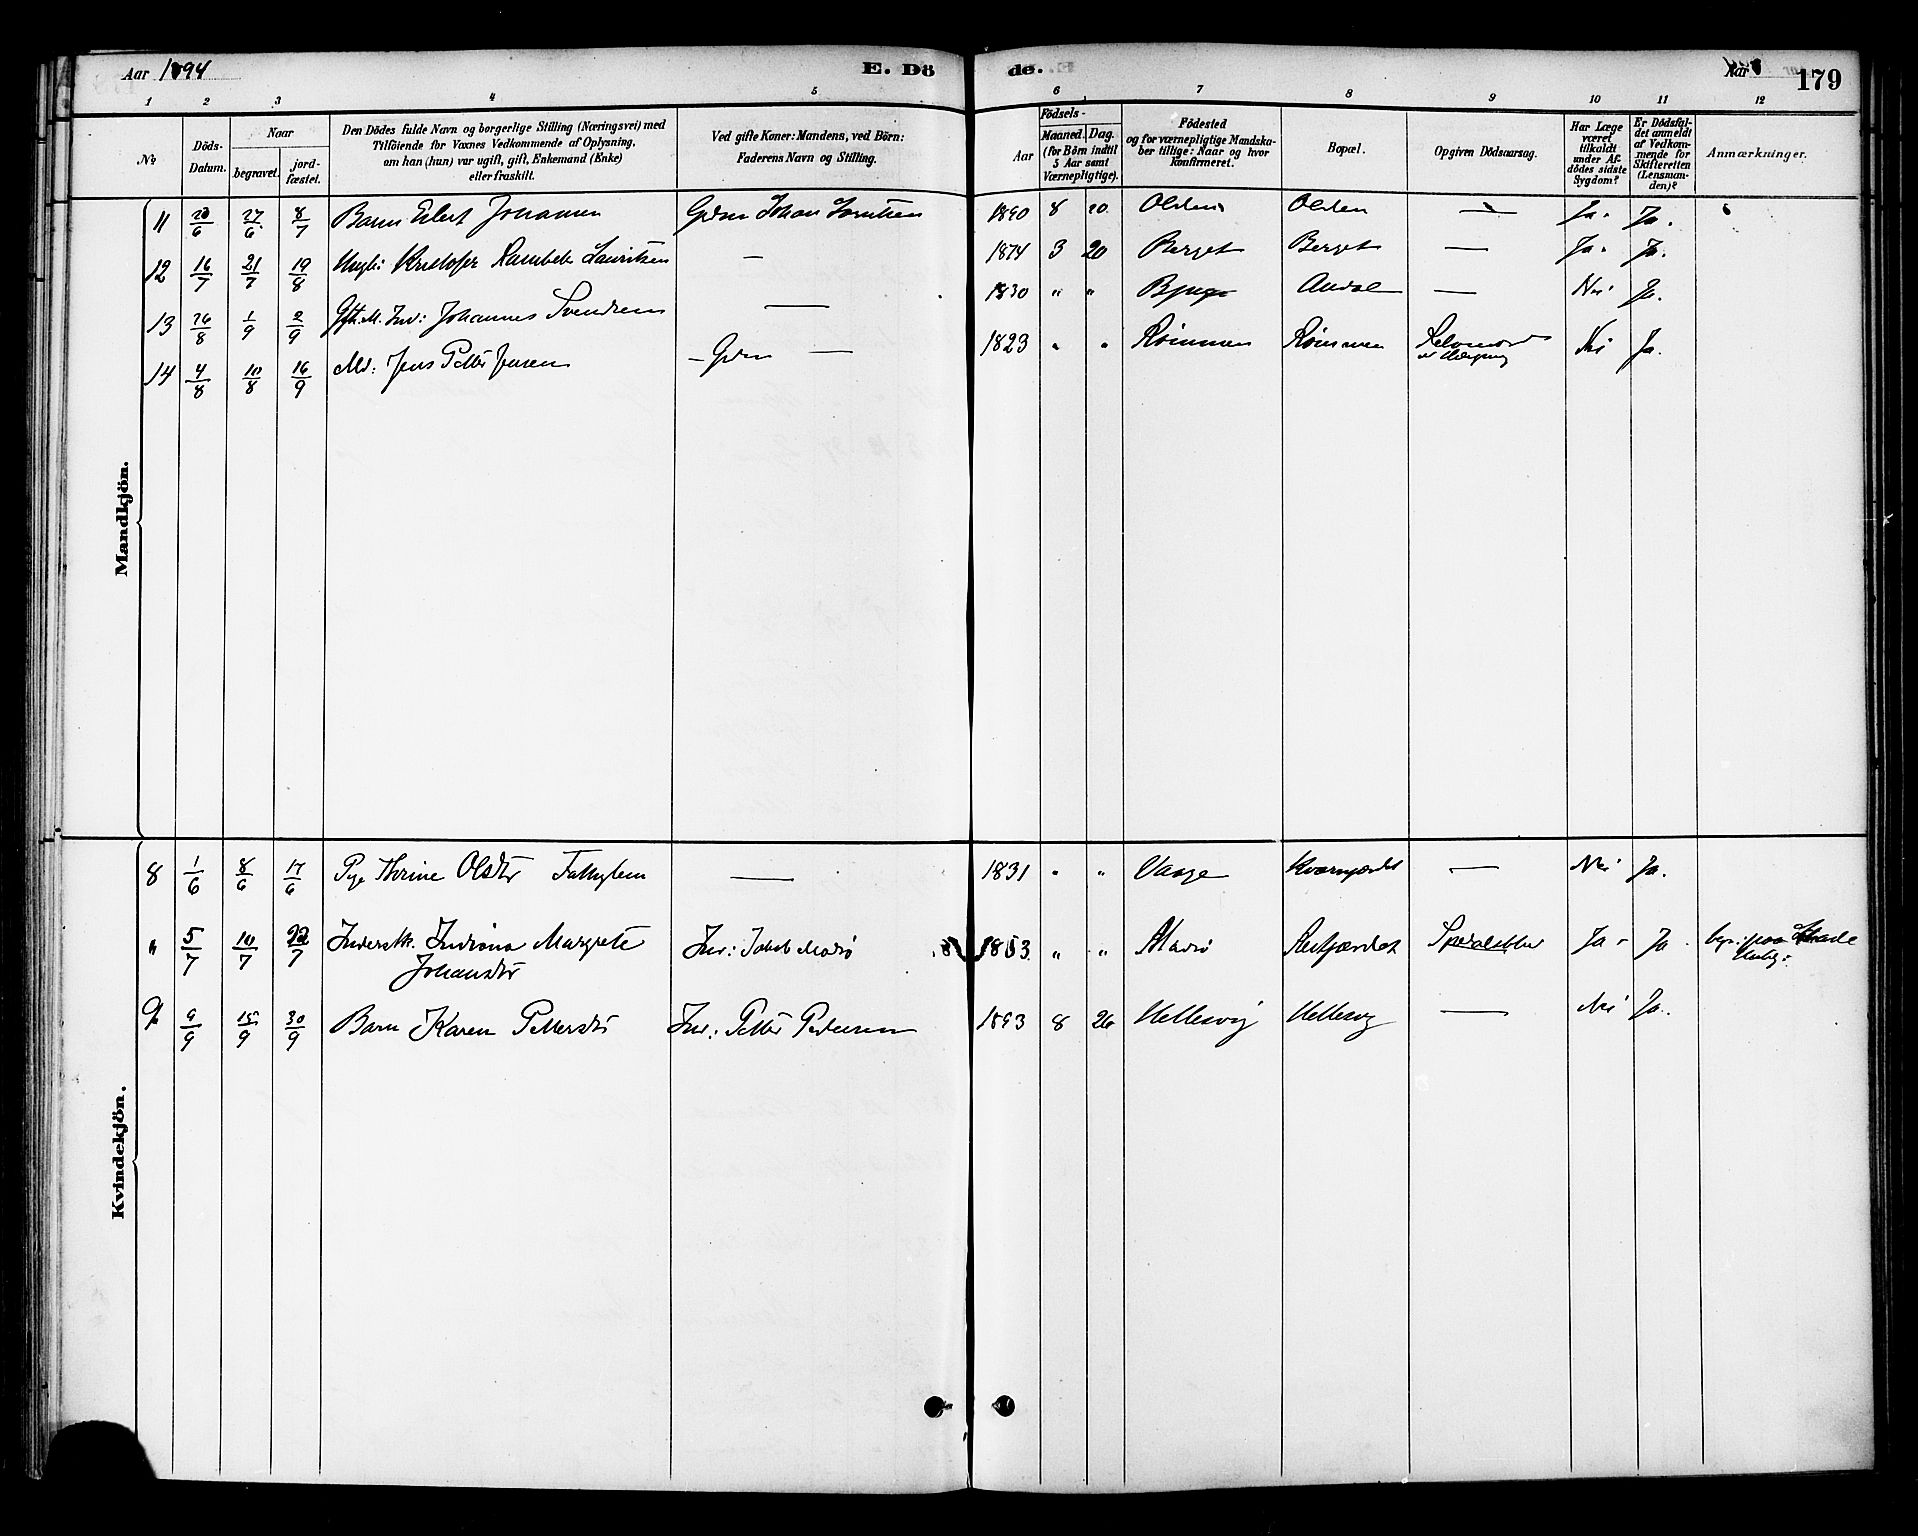 Aar 1894
E. Dö
de.
Aar
179
1 2 3 4 5 6 7 8 9 10 11 12
No
Döds-Datum.
Naar
begravet.
jordfæstet.
Den Dödes fulde Navn og borgerlige Stilling (Næringsvei) med
Tilföiende for Voxnes Vedkommende af Oplysning,
om han (hun) var ugift, gift, Enkemand (Enke)
eller fraskilt.
Ved gifte Koner: Mandens, ved Börn:
Faderens Navn og Stilling.
Födsels-
Aar
Maaned. Dag.
(for Börn indtil
5 Aar samt
Værnepligtige).
Födested
og for værnepligtige Mandska-
ber tillige: Naar og hvor
Konfirmeret.
Bopæl.
Opgiven Dödsaarsag.
Har Læge
været
tilkaldt
under Af-
dödes sidste
Sygdom?
Er Dödsfal-
det anmeldt
af Vedkom-
mende for
Skifteretten
(Lensman-
den)?
Anmærkninger.
Mandkjön.
11 27/6 8/7 Barn Johansen Gdm Johan 1890 8 20 Olden Olden — Ja. Ja.
12 16/7 21/7 19/8 Kristofer Lauritsen — 1874 3 20 Berget Berget — Ja. Ja.
13 26/8 1/9 2/9 Johannes Svendsen — 1830 " " — Nei Ja.
14 4/8 10/8 16/9 Jens Petter Jensen — Gdm — 1823 " " Rømmen Rømmen Selvmord Nei Ja.
Kvindekjön.
8 1/6 8/6 17/6 Pige Olsdtr — 1831 " " Vaage — Nei Ja.
" 5/7 10/7 22/7 Margrete Ind: Jakob 1853 " " Ja - Ja.
Johansdtr
9 9/9 15/9 30/9 Barn Karen Pettersdtr Ind: Petter Pedersen 1893 8 26 Hellesvig Hellesvig — Nei Ja.